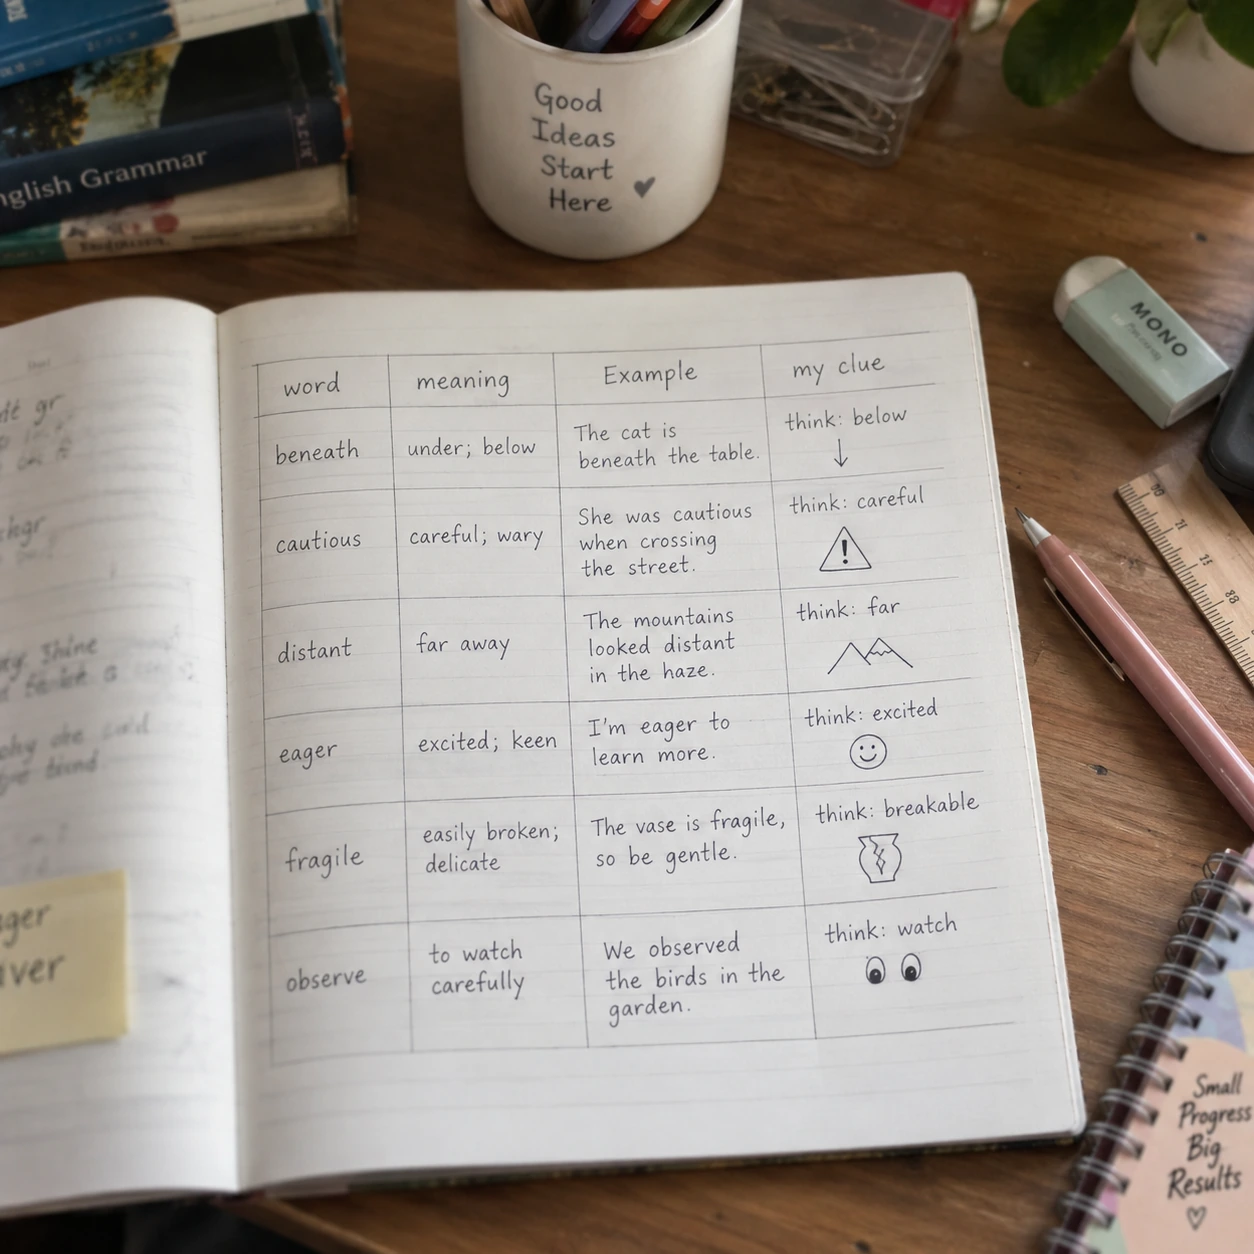 English Grammar
Good
Ideas
Start
Here
MONO
word meaning Example my clue
beneath under; below The cat is
beneath the table. think: below
cautious careful; wary She was cautious
when crossing
the street. think: careful
!
distant far away The mountains
looked distant
in the haze. think: far
eager excited; keen I'm eager to
learn more. think: excited
fragile easily broken;
delicate The vase is fragile,
so be gentle. think: breakable
observe to watch
carefully We observed
the birds in the
garden. think: watch
Small
Progress
Big
Results